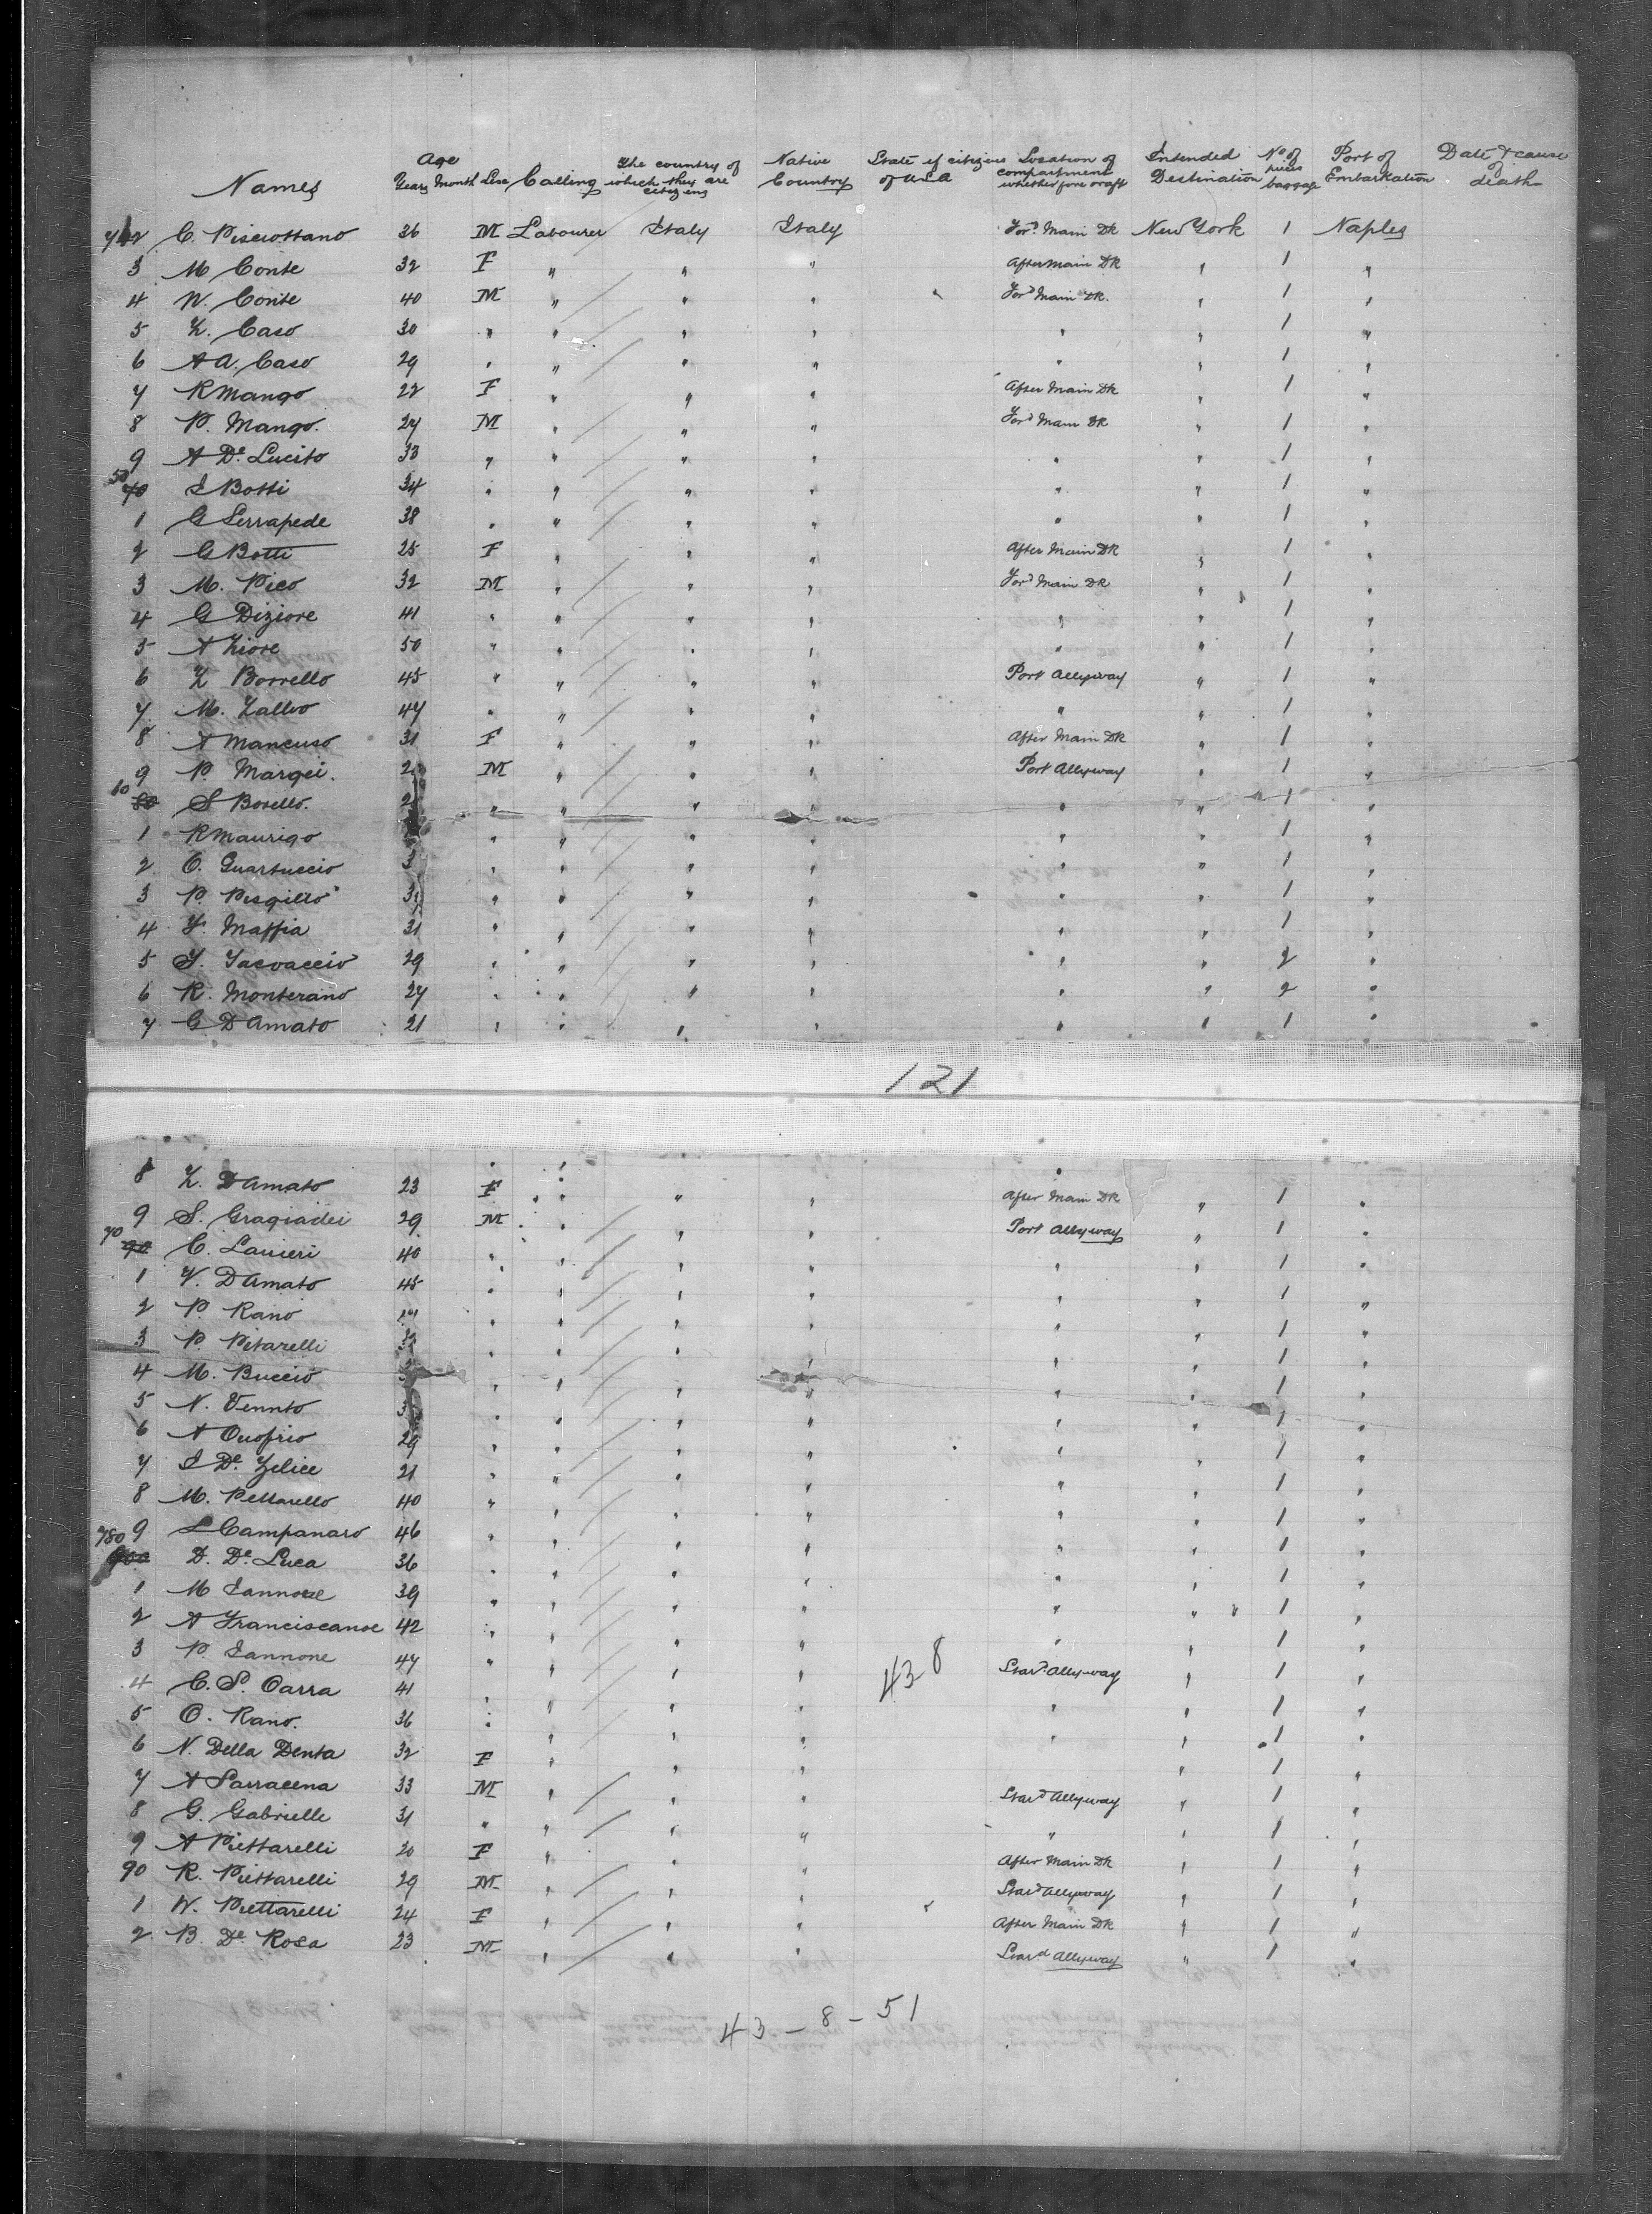 Names Age Years Month Sex Calling The country of which they are citizens Native Country State if citizens of U.S.A Location of compartment whether fore or aft Intended Destination No of pieces baggage Port of Embarkation Date & cause of death
742 C. Pisciottano 36 M Labourer Italy Italy For'd Main Dk New York 1 Naples
3 M Conte 32 F " " " After Main Dk " 1 "
4 N. Conte 40 M " " " For'd Main Dk. " 1 "
5 F. Caso 30 " " " " " " 1 "
6 A A. Caso 29 " " " " " " 1 "
7 R Mango 22 F " " " After Main Dk " 1 "
8 P. Mango. 27 M " " " For'd Main Dk " 1 "
9 A De Lucito 33 " " " " " " 1 "
50 I Botti 34 " " " " " " 1 "
1 G Serrapede 38 " " " " " " 1 "
2 G Botti 25 F " " " After Main Dk " 1 "
3 M. Pico 32 M " " " For'd Main Dk " 1 "
4 G Diziore 41 " " " " " " 1 "
5 A Fiore 50 " " " " " " 1 "
6 F Borrello 45 " " " " Port Allyway " 1 "
7 M. Fallvo 47 " " " " " " 1 "
8 A Mancuso 31 F " " " After Main Dk " 1 "
9 P. Margei. M " " " Port Allyway " 1 "
60 S Borello. " " " " " " 1 "
1 R Maurigo " " " " " " 1 "
2 O. Guartuccio " " " " " " 1 "
3 P. Pisgitto " " " " " " 1 "
4 F. Maffia 31 " " " " " " 1 "
5 G. Iacvaccio 29 " " " " " " 2 "
6 R. Monterano 27 " " " " " " 2 "
7 G D'Amato 21 " " " " " " 1 "
121
8 F. D'Amato 23 F " " " After Main Dk " 1 "
9 S. Gragiadei 29 M " " " Port Allyway " 1 "
70 C. Lanieri 40 " " " " " " 1 "
1 V. D'Amato 45 " " " " " " 1 "
2 P. Rano " " " " " " 1 "
3 P. Pitarelli 32 " " " " " " 1 "
4 M. Buccio " " " " " " 1 "
5 N. Vennto " " " " " " 1 "
6 A Onofrio 29 " " " " " " 1 "
7 I De Felice 21 " " " " " " 1 "
8 M. Pettarello 40 " " " " " " 1 "
9 L Campanaro 46 " " " " " " 1 "
780 D. De Luca 36 " " " " " " 1 "
1 M Iannone 39 " " " " " " 1 "
2 A Franciscanoe 42 " " " " " " 1 "
3 P. Iannone 47 " " " " 438 Star'd Allyway " 1 "
4 C. S. Carra 41 " " " " " " 1 "
5 O. Rano. 36 " " " " " " 1 "
6 N. Della Denta 32 F " " " " 1 "
7 A Sarracena 33 M " " " Star'd Allyway " 1 "
8 G. Gabrielle 31 " " " " " " 1 "
9 A Piettarelli 20 F " " " After Main Dk " 1 "
90 R. Piettarelli 29 M " " " Star'd Allyway " 1 "
1 N. Piettarelli 24 F " " " After Main Dk " 1 "
2 B. De Rosa 23 M " " " Star'd Allyway " 1 "
43 - 8 - 51